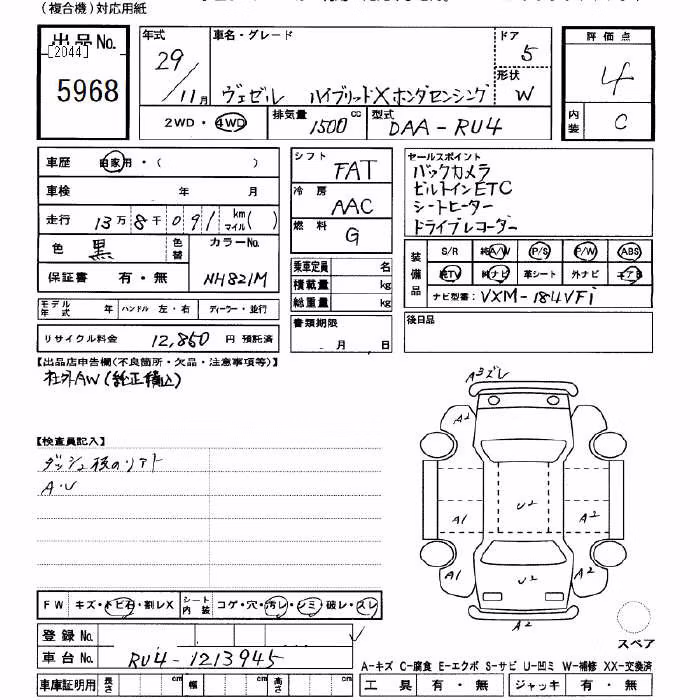 (複合機)対応用紙
出品No.
[2044]
5968
年式
29/11月
車名・グレード
ヴェゼル ハイブリッドXホンダセンシング
ドア
5
形状
W
評価点
4
内装
C
2WD・4WD
排気量
1500cc
型式
DAA-RU4
車歴 自家用・( )
車検 年 月
走行 13万8千091 km マイル( )
色 黒
色替
カラーNo.
NH821M
保証書 有・無
モデル年式 年 ハンドル 左・右 ディーラー・並行
リサイクル料金 12,850円 預託済
シフト FAT
冷房 AAC
燃料 G
乗車定員 名
積載量 kg
総重量 kg
書類期限
月 日
セールスポイント
バックカメラ
ビルトインETC
シートヒーター
ドライブレコーダー
装備品
S/R 純A/W P/S P/W ABS
純TV 純ナビ 革シート 外ナビ エアB
ナビ型番: VXM-184VFi
後日品
【出品店申告欄(不良箇所・欠品・注意事項等)】
社外AW(純正積込)
【検査員記入】
A・U
A3ズレ
A2
A1
U2
A2
A2
A1
U2
A2
A2
スペア
FW キズ・トビ石・割レX
シート内装 コゲ・穴・汚レ・シミ・破レ・スレ
登録No.
車台No. RU4-1213945
車庫証明用 長さ cm 幅 cm 高さ cm
A-キズ C-腐食 E-エクボ S-サビ U-凹ミ W-補修 XX-交換済
工具 有・無 ジャッキ 有・無